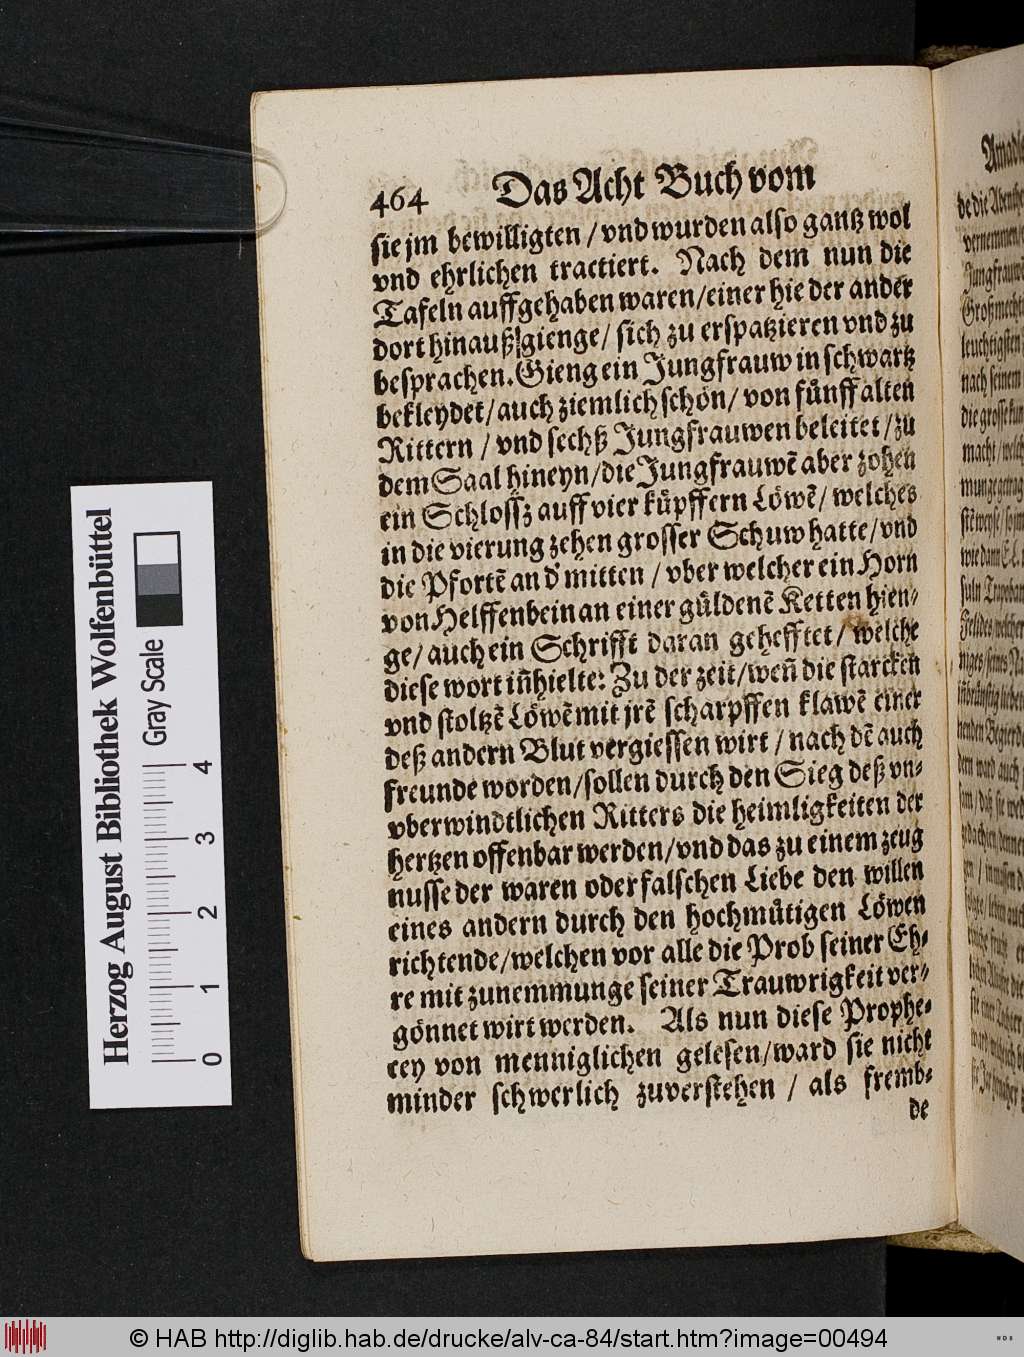 464 Das Acht Buch vom
sie jm bewilligten / vnd wurden also gantz wol
vnd ehrlichen tractiert. Nach dem nun die
Tafeln auffgehaben waren / einer hie der ander
dort hinauß gienge / sich zu erspatzieren vnd zu
besprachen. Gieng ein Jungfrauw in schwartz
bekleydet / auch ziemlich schön / von fünff alten
Rittern / vnd sechß Jungfrauwen beleitet / zu
dem Saal hineyn / die Jungfrauwē aber zohen
ein Schlossz auff vier küpffern Löwē / welches
in die vierung zehen grosser Schuw hatte / vnd
die Pfortē an d' mitten / vber welcher ein Horn
von Helffenbein an einer güldenē Ketten hien-
ge / auch ein Schrifft daran gehefftet / welche
diese wort iñhielte: Zu der zeit / weñ die starcken
vnd stoltzē Löwē mit jrē scharpffen klawē einer
deß andern Blut vergiessen wirt / nach dē auch
freunde worden / sollen durch den Sieg deß vn-
vberwindtlichen Ritters die heimligkeiten der
hertzen offenbar werden / vnd das zu einem zeug
nusse der waren oder falschen Liebe den willen
eines andern durch den hochmütigen Löwen
richtende / welchen vor alle die Prob seiner Eh-
re mit zunemmunge seiner Trauwrigkeit ver-
gönnet wirt werden. Als nun diese Prophe-
cey von menniglichen gelesen / ward sie nicht
minder schwerlich zuverstehen / als fremb-
de
Herzog August Bibliothek Wolfenbüttel
Gray Scale
0 1 2 3 4
© HAB http://diglib.hab.de/drucke/alv-ca-84/start.htm?image=00494